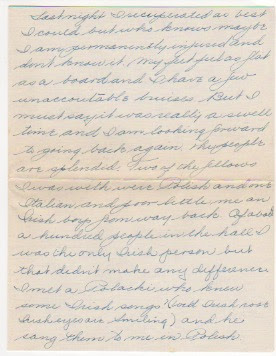 Last night I recuperated as best
I could but who knows maybe
I am permanently injured and
don't know it. My feet feel as flat
as a board and I have a few
unaccountable bruises. But I
must say it was really a swell
time and I am looking forward
to going back again. The people
are splendid. Two of the fellows
I was with were Polish and one
Italian and poor little me an
Irish boy from way back. Of about
a hundred people in the hall I
was the only Irish person but
that didn't make any difference
I met a Polack who knew
some Irish songs (Wild Irish rose
Irish eyes are smiling) and he
sang them to me in Polish.